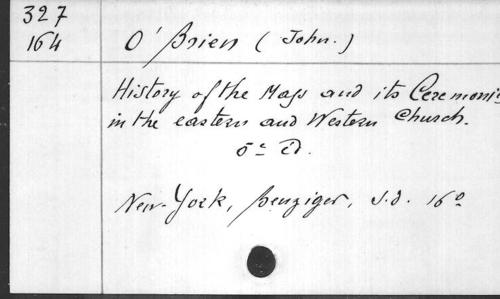 327
164
O'Brien (John.)
History of the Mass and its Ceremonie
in the eastern and Western Church.
5e éd.
New-York, Benziger, s.d. 16o